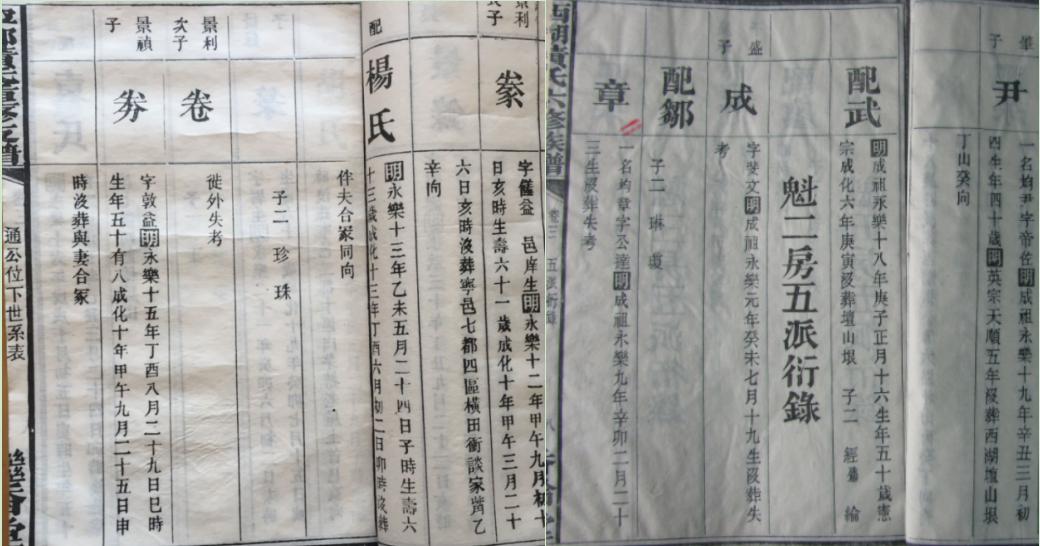 子
尹
一名均尹字帝佐明成祖永樂十九年辛丑三月初
四生年四十歲明英宗天順五年歿葬西湖壇山垠
丁山癸向
配武
明成祖永樂十八年庚子正月十六生年五十歲憲
宗成化六年庚寅歿葬壇山垠 子二 經 綸
魁二房五派衍錄
盛
子
成
字斐文明成祖永樂元年癸未七月十九生歿葬失
考
配鄒
子二 琳
章
一名均章字公達明成祖永樂九年辛卯二月二十
三生歿葬失考
西湖黃氏六修族譜
卷三
五派衍錄
八
景利
次子
豢
邑庠生明永樂十二年甲午九月初十
日亥時生壽六十一歲成化十年甲午三月二十
六日亥時沒葬寧邑七都四區橫田衝談家嘴乙
辛向
配
楊氏
明永樂十三年乙未五月二十四日子時生壽六
十三歲成化十三年丁酉六月初二日卯時沒葬
伴夫合冢同向
子二 珍 珠
景利
次子
卷
徙外失考
景禎
子
字敦益明永樂十五年丁酉八月二十九日巳時
生年五十有八歲成化十年甲午九月二十五日申
時沒葬與妻合冢
通公位下世系表